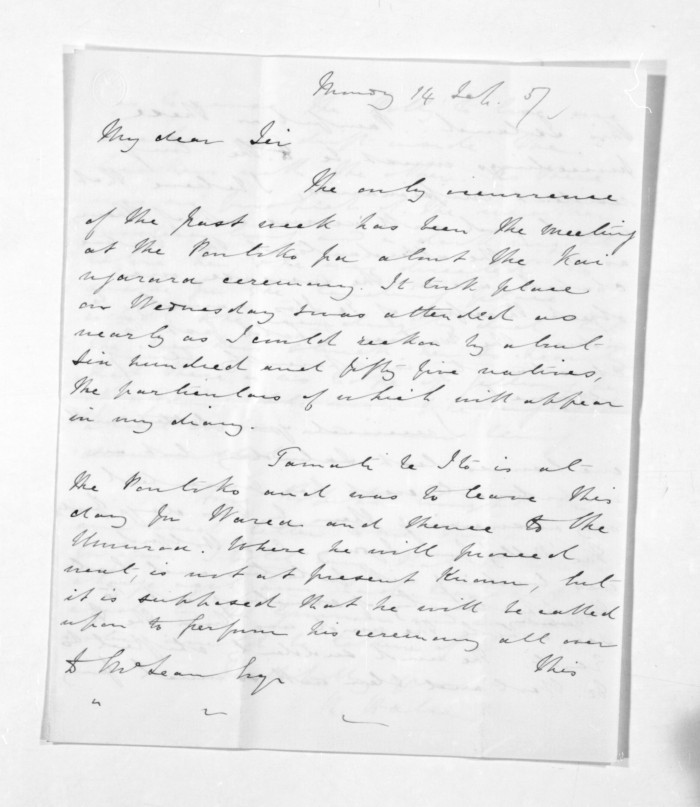 Monday 14 Feb. 57
My dear Sir
The only occurrence
of the past week has been the meeting
at the Poutoko pa about the Kai
ngarara ceremony. It took place
on Wednesday & was attended as
nearly as I could reckon by about
Six hundred and fifty five natives,
the particulars of which will appear
in my diary.
Tamati te Ito is at
the Poutoko and was to leave this
day for Warea and thence to the
Umuroa. Where he will proceed
next, is not at present Known, but
it is supposed that he will be called
upon to perform his ceremony all over
D McLean Esqr this
" " "